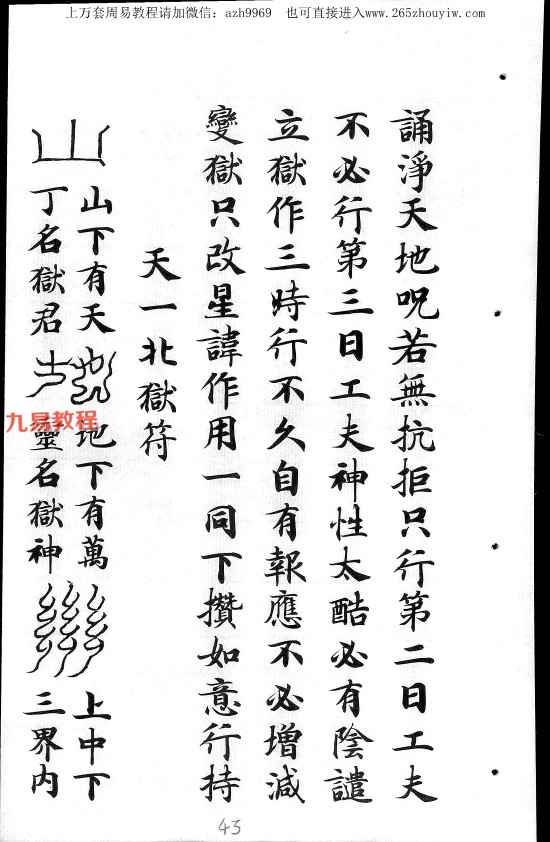 上万套周易教程请加微信：azh9969 也可直接进入www.265zhouyiw.com
誦淨天地呪若無抗拒只行第二日工夫
不必行第三日工夫神性太酷必有陰譴
立獄作三時行不久自有報應不必增減
變獄只改星諱作用一同下攢如意行持
天一北獄符
山下有天
丁名獄君
地下有萬
靈名獄神
上中下
三界內
九易教程
43